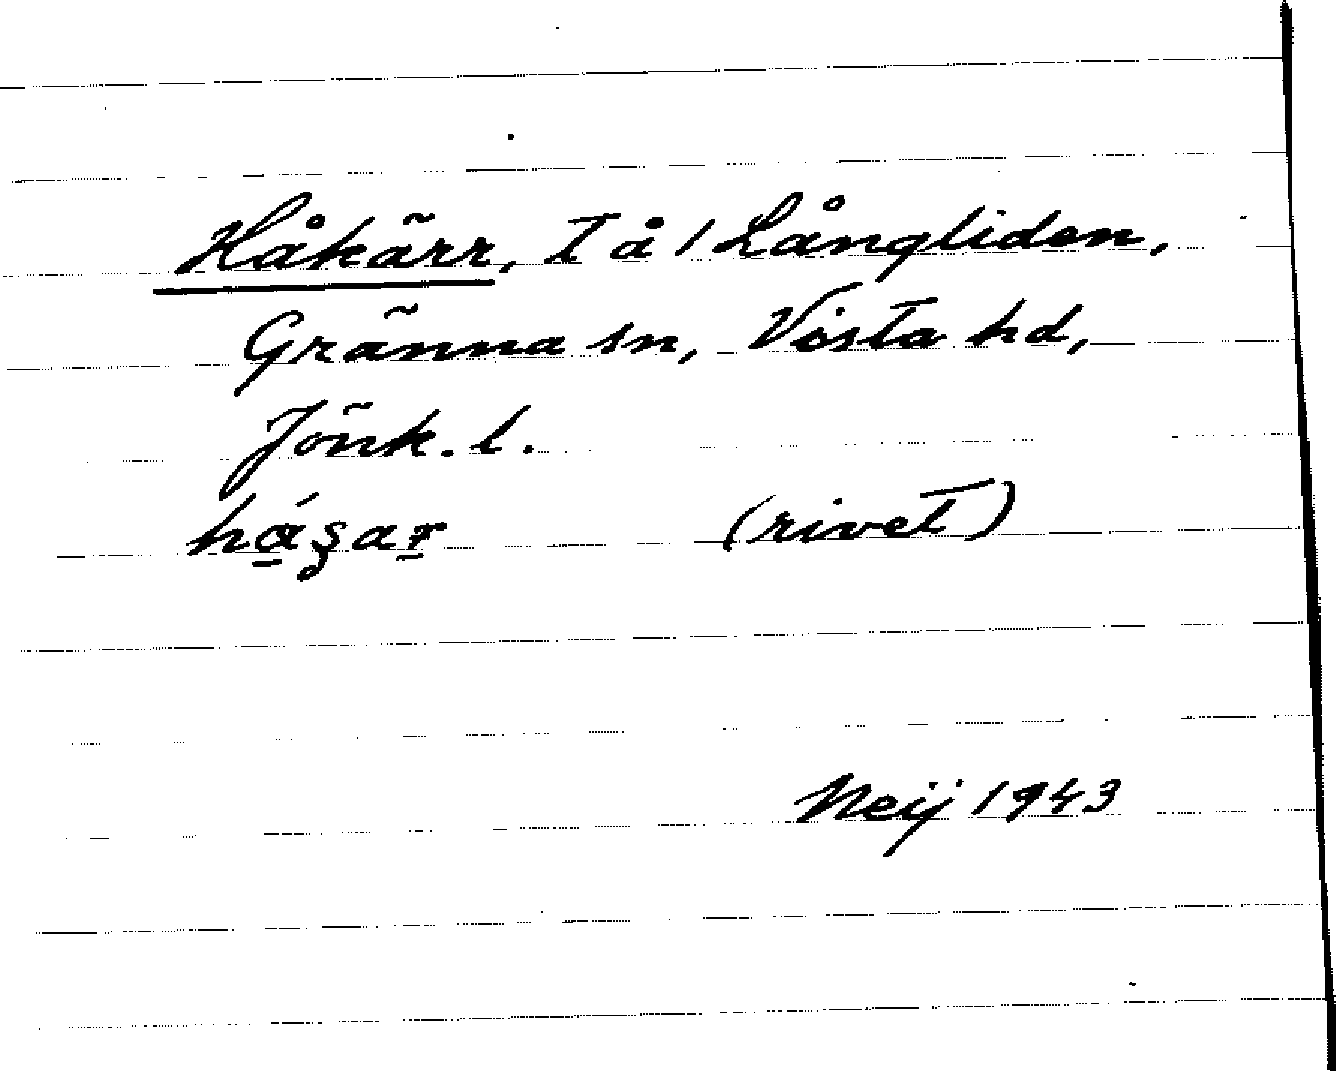 Håkärr, t å / Långliden,
Gränna sn, Vista hd,
Jönk. l.
(rivet)
Neij 1943